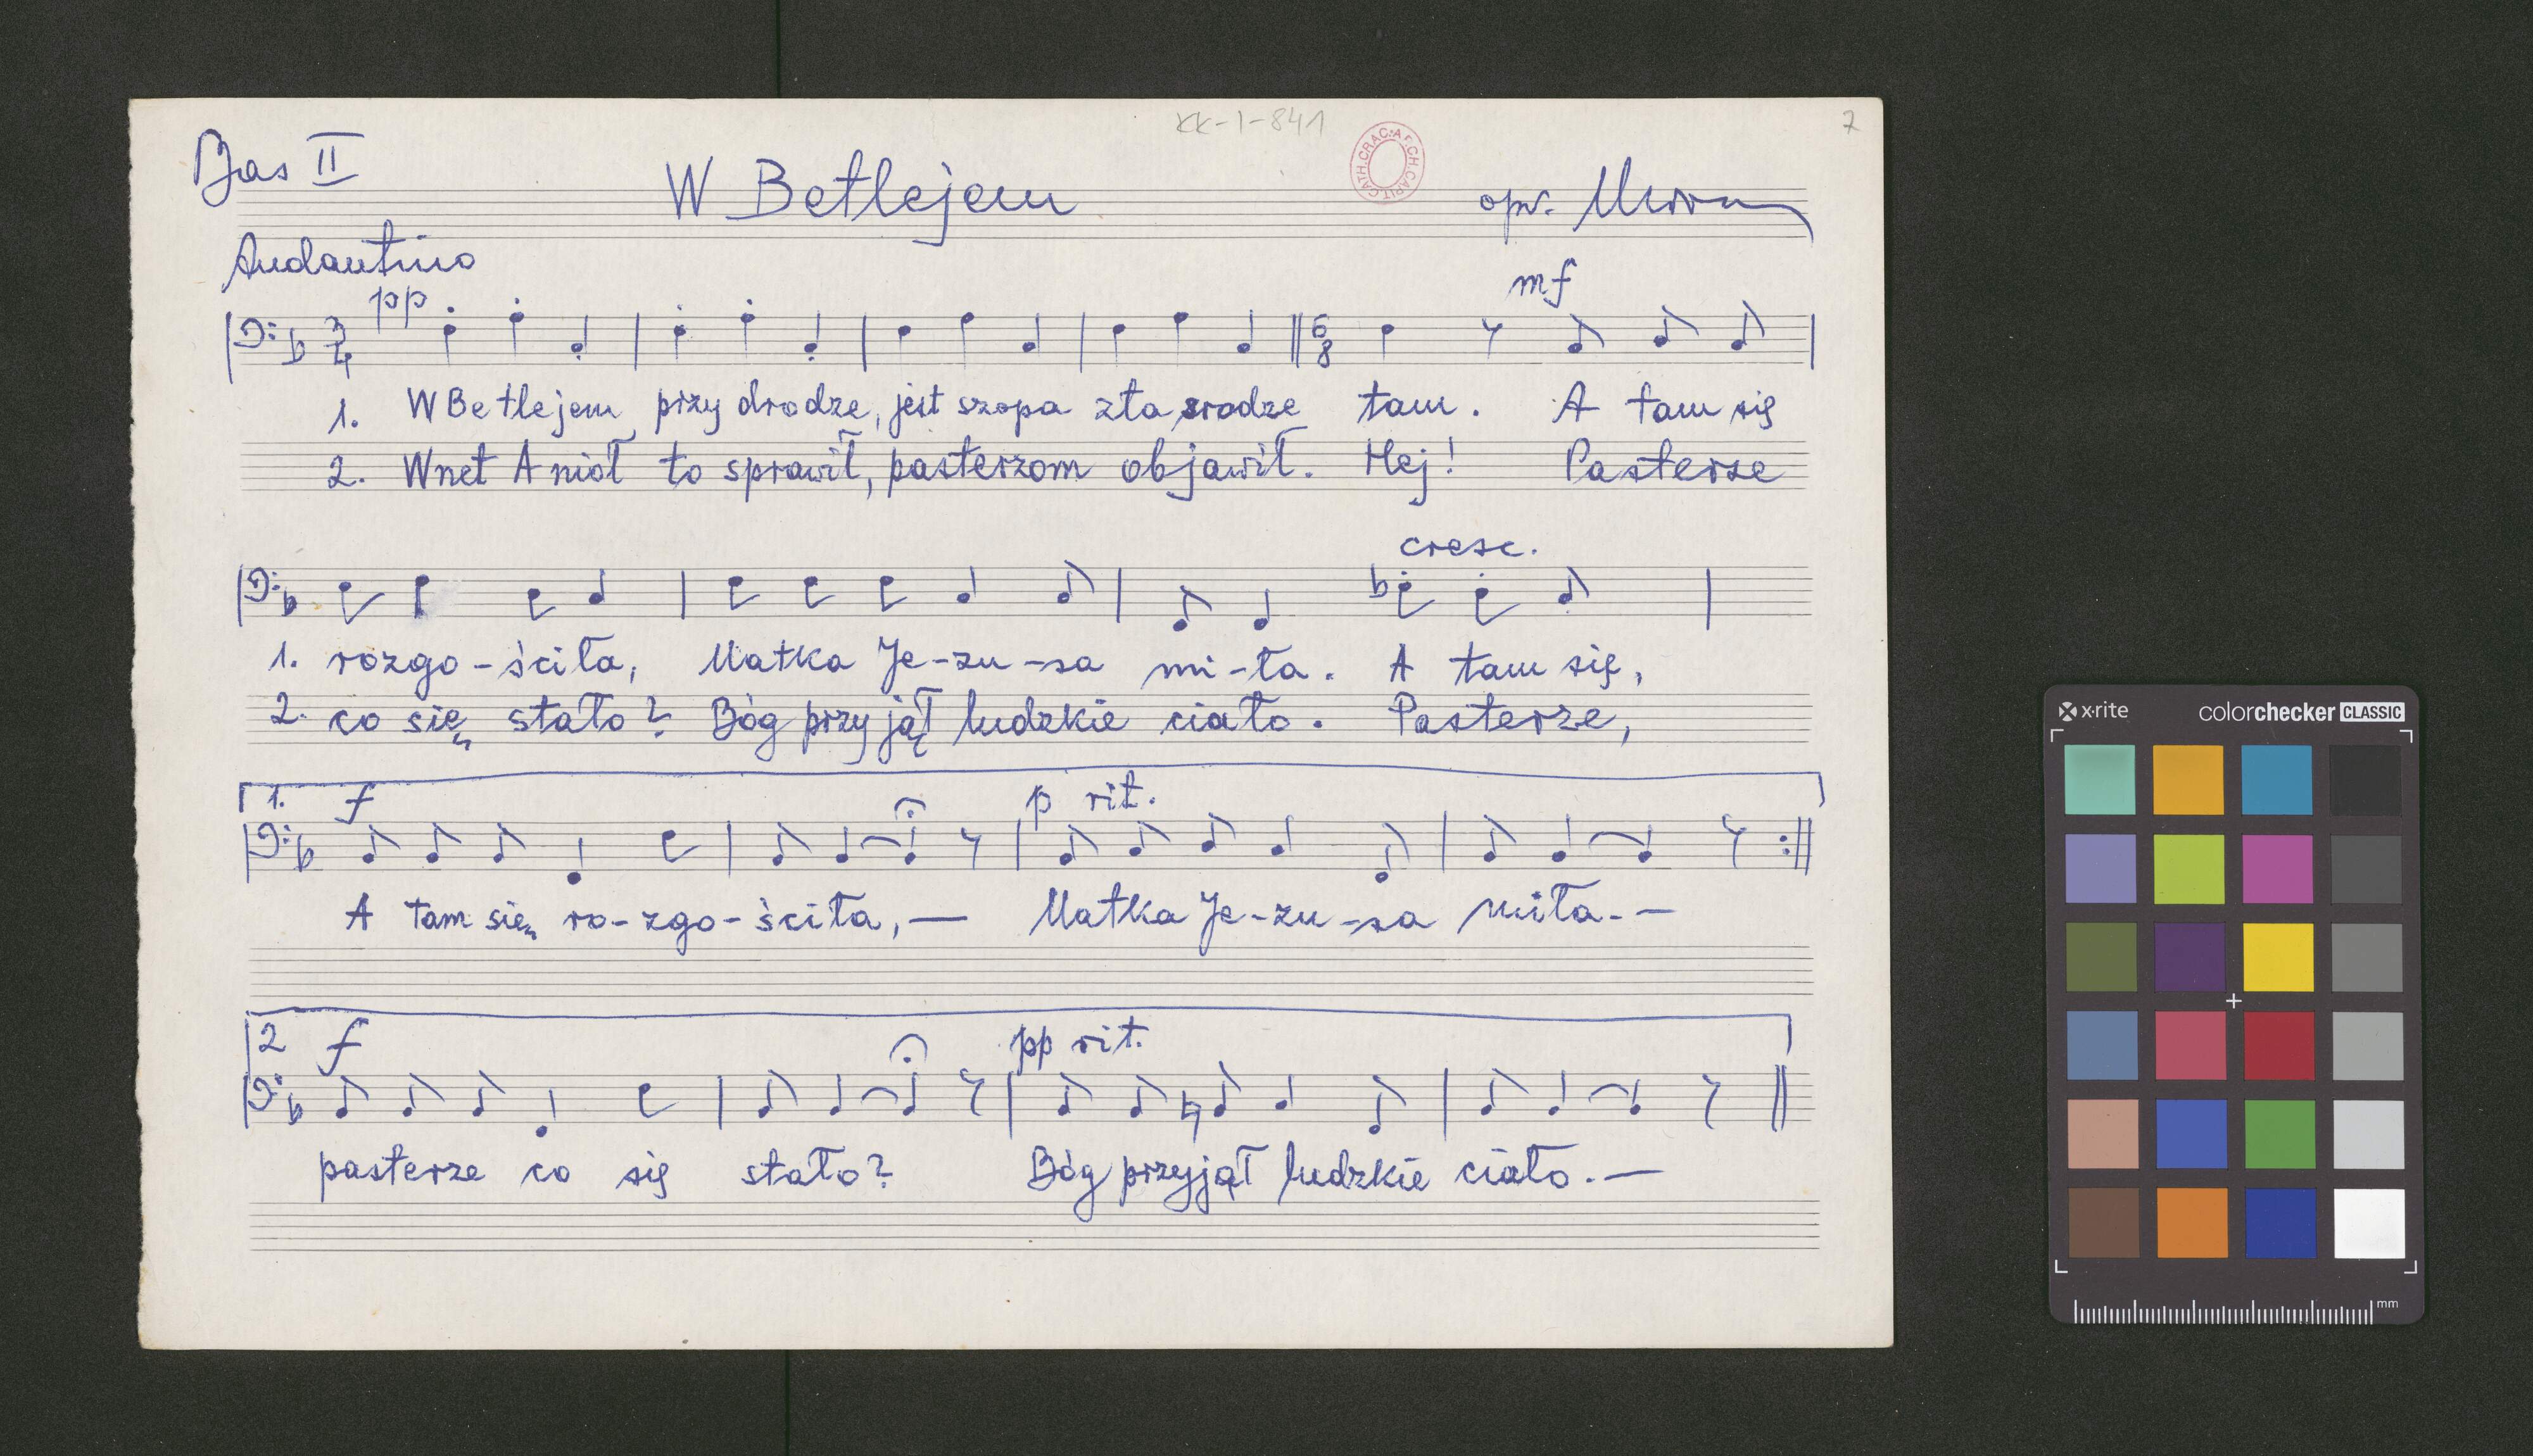 KK-1-841
7
Bas II
W Betlejem
opr.
Andantino
pp
mf
3/4
6/8
1. W Betlejem przy drodze, jest szopa zła srodze tam. A tam się
2. Wnet Anioł to sprawił, pasterzom objawił. Hej! Pasterze
cresc.
1. rozgo-ściła, Matka Je-zu-sa mi-ła. A tam się,
2. co się stało? Bóg przyjął ludzkie ciało. Pasterze,
1. f p rit.
A tam się ro-zgo-ściła, — Matka Je-zu-sa miła. —
2 f pp rit.
pasterze co się stało? Bóg przyjął ludzkie ciało. —
x-rite colorchecker CLASSIC
mm